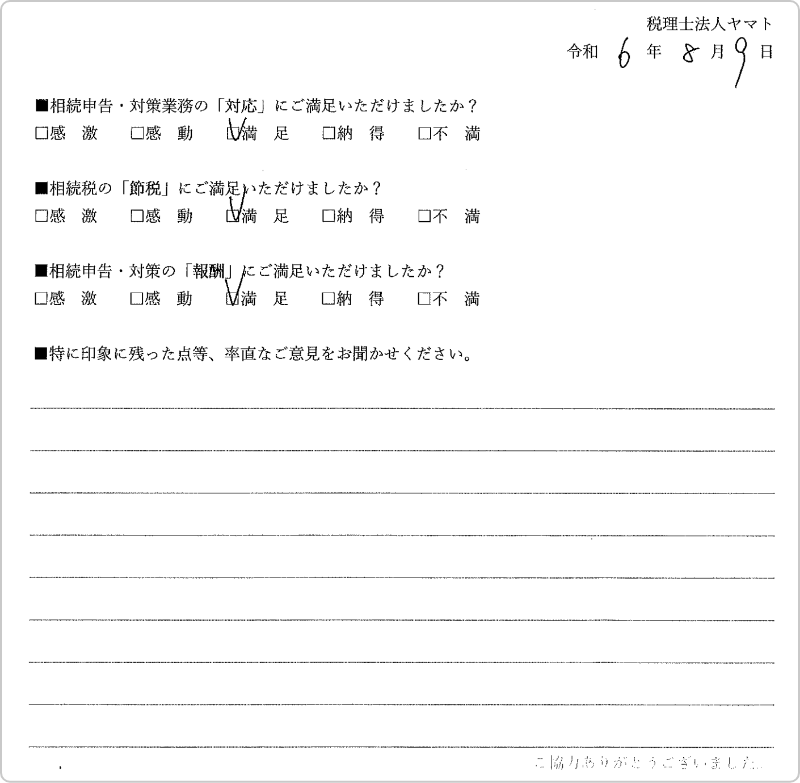 税理士法人ヤマト
令和 6 年 8 月 9 日
■相続申告・対策業務の「対応」にご満足いただけましたか？
□感 激 □感 動 ☑満 足 □納 得 □不 満
■相続税の「節税」にご満足いただけましたか？
□感 激 □感 動 ☑満 足 □納 得 □不 満
■相続申告・対策の「報酬」にご満足いただけましたか？
□感 激 □感 動 ☑満 足 □納 得 □不 満
■特に印象に残った点等、率直なご意見をお聞かせください。
ご協力ありがとうございました。